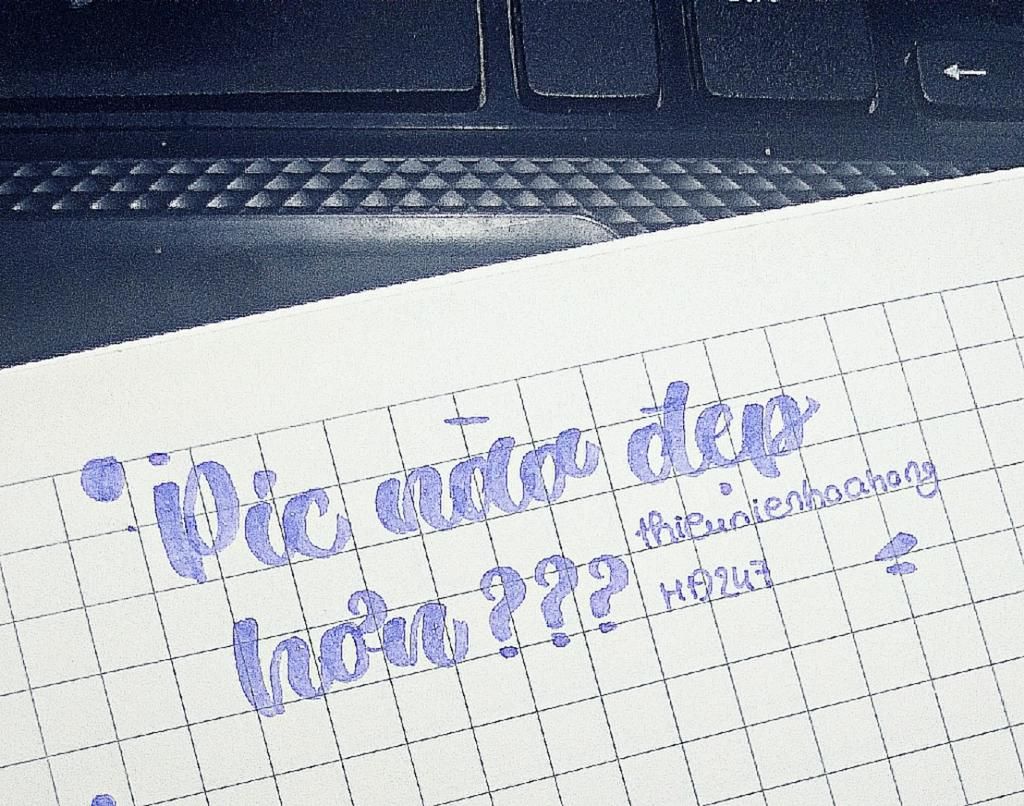 Pic nào đẹp
thieunienhoahong
hơn ???
HĐ247